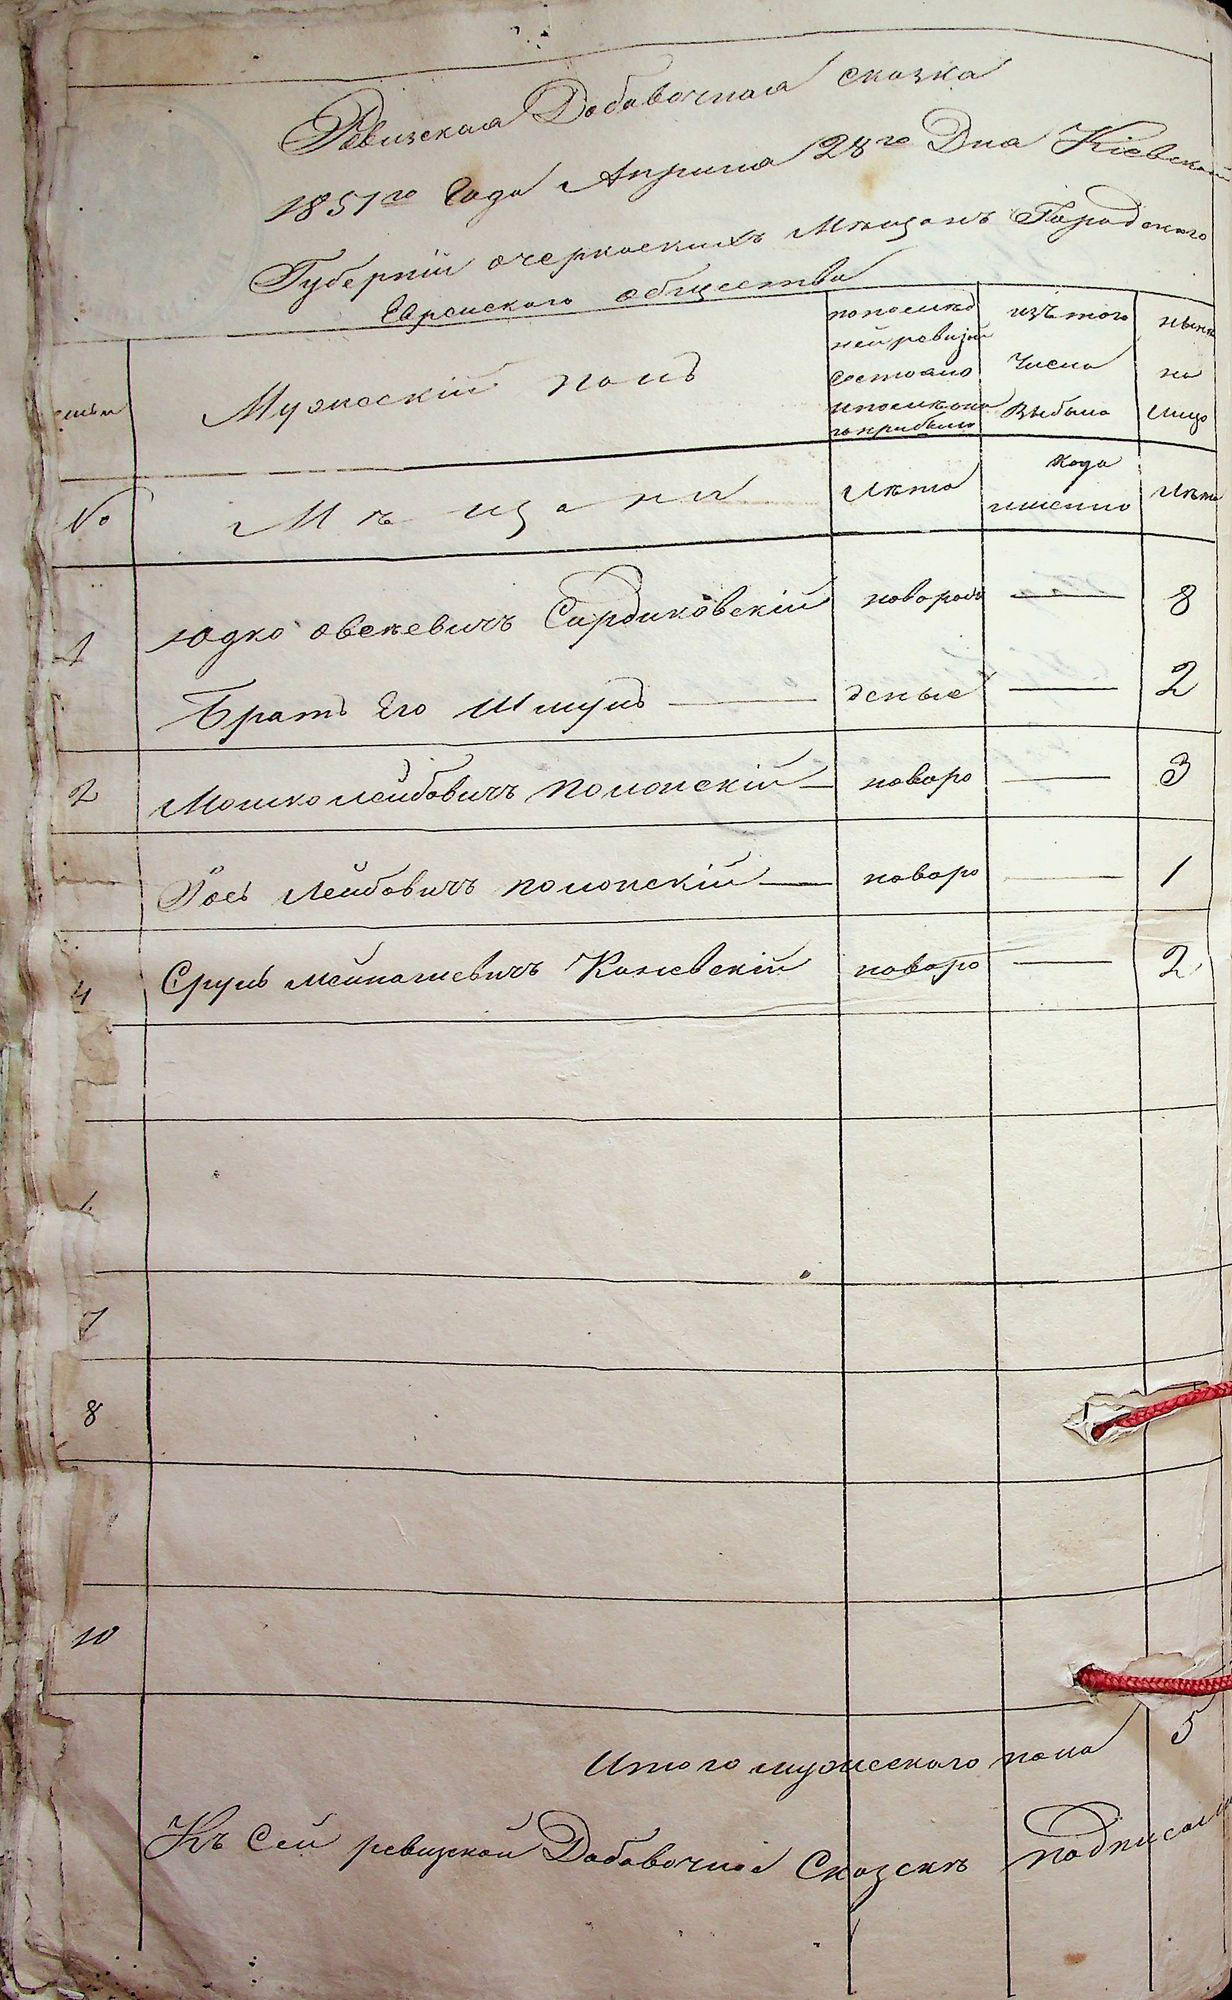 Ревизская Добавочная сказка
1851го Года Априля 28го Дня Кіевской
Губерніи очеркаскихъ Мещанъ Городского
Еврейского общества
Мужескій полъ
по послед
ней ревизіи
состояло
и после оно
го прибыло
изъ того
Числа
Выбыло
ныне
на
лицо
№
Мещани
Лета
Когда
именно
Лета
1
Юдко Овсеевичъ Сардиковскій новорож — 8
Братъ Его Шмуль — деные — 2
2 Мошко Лейбовичъ Полонскій — новоро — 3
Іось Лейбовичъ Полонскій — новоро — 1
4 Сруль Мейнашевичъ Каневскій новоро — 2
7
8
10
Итого мужеского пола 5
Къ Сей ревизской Добавочной Сказске подписал